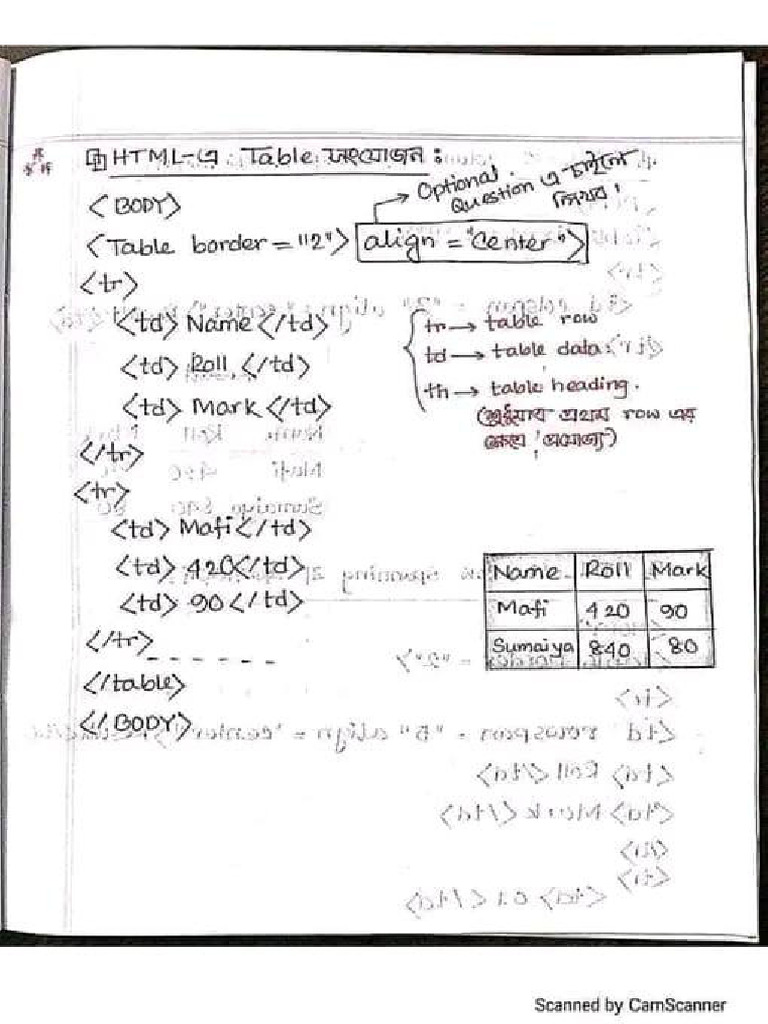 HTML-এ Table সংযোজন :
Optional.
Question এ চাইলে
লিখব।
<BODY>
<Table border = "2"> align = "Center">
<tr>
<td> Name </td>
<td> Roll </td>
<td> Mark </td>
</tr>
tr → table row
td → table data
th → table heading.
(শুধুমাত্র প্রথম row এর
ক্ষেত্রে প্রযোজ্য)
<tr>
<td> Mafi </td>
<td> 420 </td>
<td> 90 </td>
</tr>
- - - - - -
</table>
</BODY>
Name Roll Mark
Mafi 420 90
Sumaiya 840 80
Scanned by CamScanner